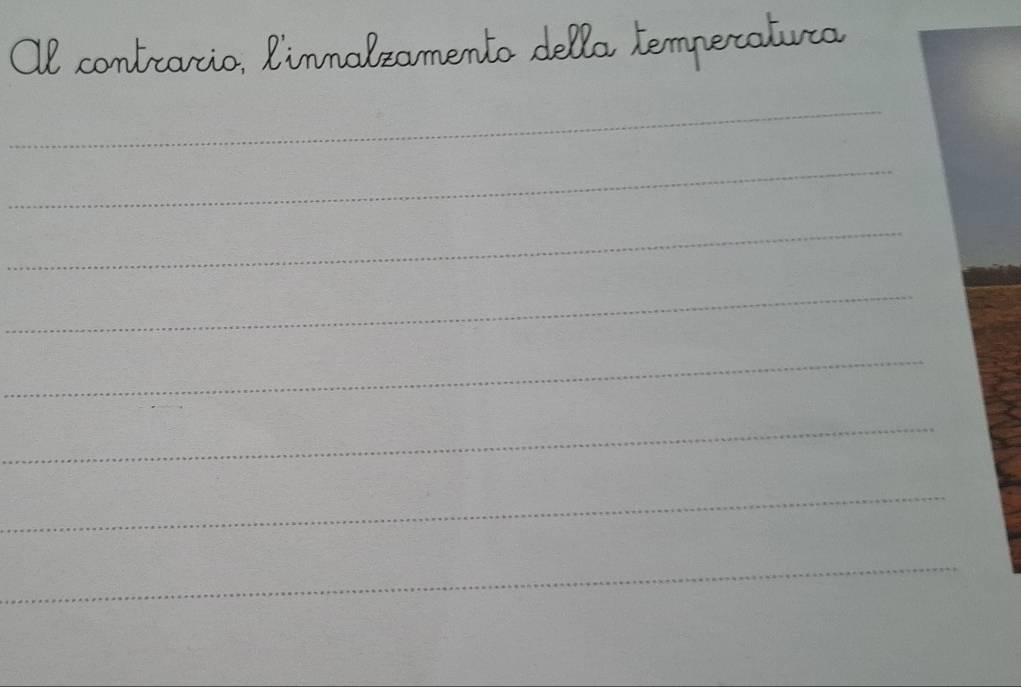 Al contrario, l'innalzamento della temperatura